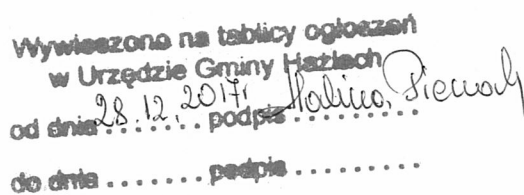 Wywieszono na tablicy ogłoszeń
w Urzędzie Gminy Hażlach
od dnia 28.12.2017r podpis Halina
do dnia ........ podpis ..........